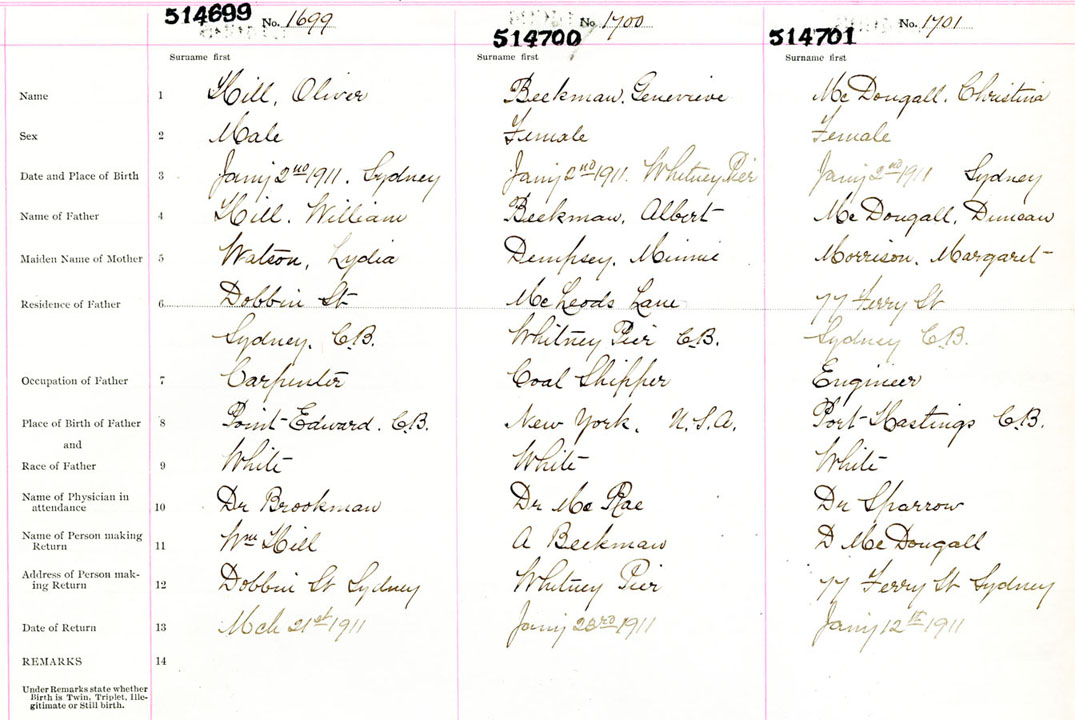 514699 No. 1699 514700 No. 1700 514701 No. 1701
Surname first Surname first Surname first
Name 1 Hill, Oliver Beekman, Genevieve Mc Dougall, Christina
Sex 2 Male Female Female
Date and Place of Birth 3 Jany 2nd 1911. Sydney Jany 2nd 1911. Whitney Pier Jany 2nd 1911 Sydney
Name of Father 4 Hill. William Beekman, Albert Mc Dougall, Duncan
Maiden Name of Mother 5 Watson, Lydia Dempsey, Minnie Morrison, Margaret
Residence of Father 6 Dobbin St Mc Leods Lane 77 Ferry St
Sydney. C.B. Whitney Pier C.B. Sydney C.B.
Occupation of Father 7 Carpenter Coal Shipper Engineer
Place of Birth of Father 8 Point Edward. C.B. New York, U.S.A. Port Hastings C.B.
and
Race of Father 9 White White White
Name of Physician in attendance 10 Dr Brookman Dr Mc Rae Dr Sparrow
Name of Person making Return 11 Wm Hill A Beekman D Mc Dougall
Address of Person mak-ing Return 12 Dobbin St Sydney Whitney Pier 77 Ferry St Sydney
Date of Return 13 Mch 21st 1911 Jany 23rd 1911 Jany 12th 1911
REMARKS 14
Under Remarks state whether
Birth is Twin, Triplet, Ille-
gitimate or Still birth.